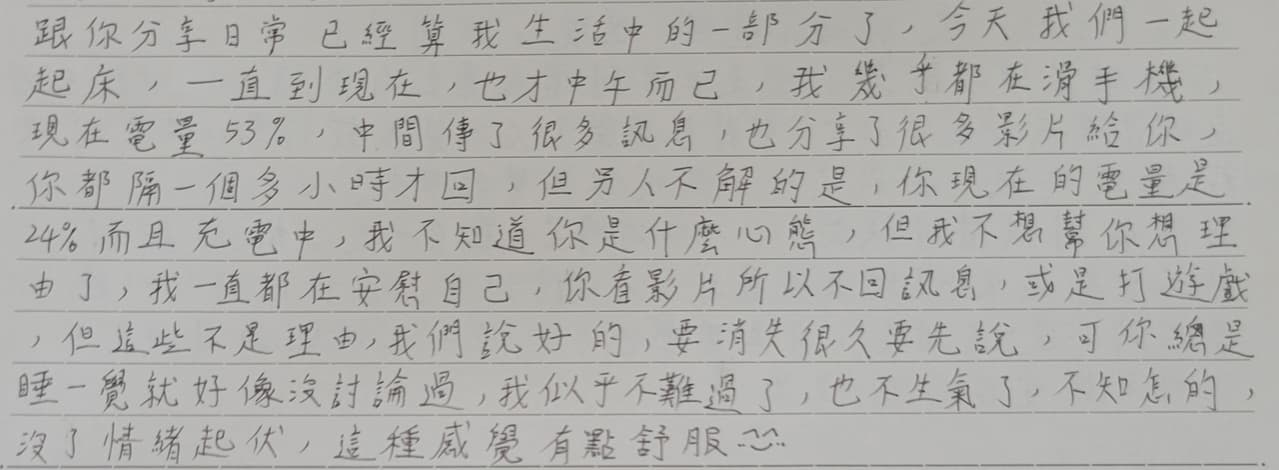 跟你分享日常已經算我生活中的一部分了，今天我們一起
起床，一直到現在，也才中午而己，我幾乎都在滑手機，
現在電量53%，中間傳了很多訊息，也分享了很多影片給你，
你都隔一個多小時才回，但另人不解的是，你現在的電量是
24%而且充電中，我不知道你是什麼心態，但我不想幫你想理
由了，我一直都在安慰自己，你看影片所以不回訊息，或是打遊戲
，但這些不是理由，我們說好的，要消失很久要先說，可你總是
睡一覺就好像沒討論過，我似乎不難過了，也不生氣了，不知怎的，
沒了情緒起伏，這種感覺有點舒服